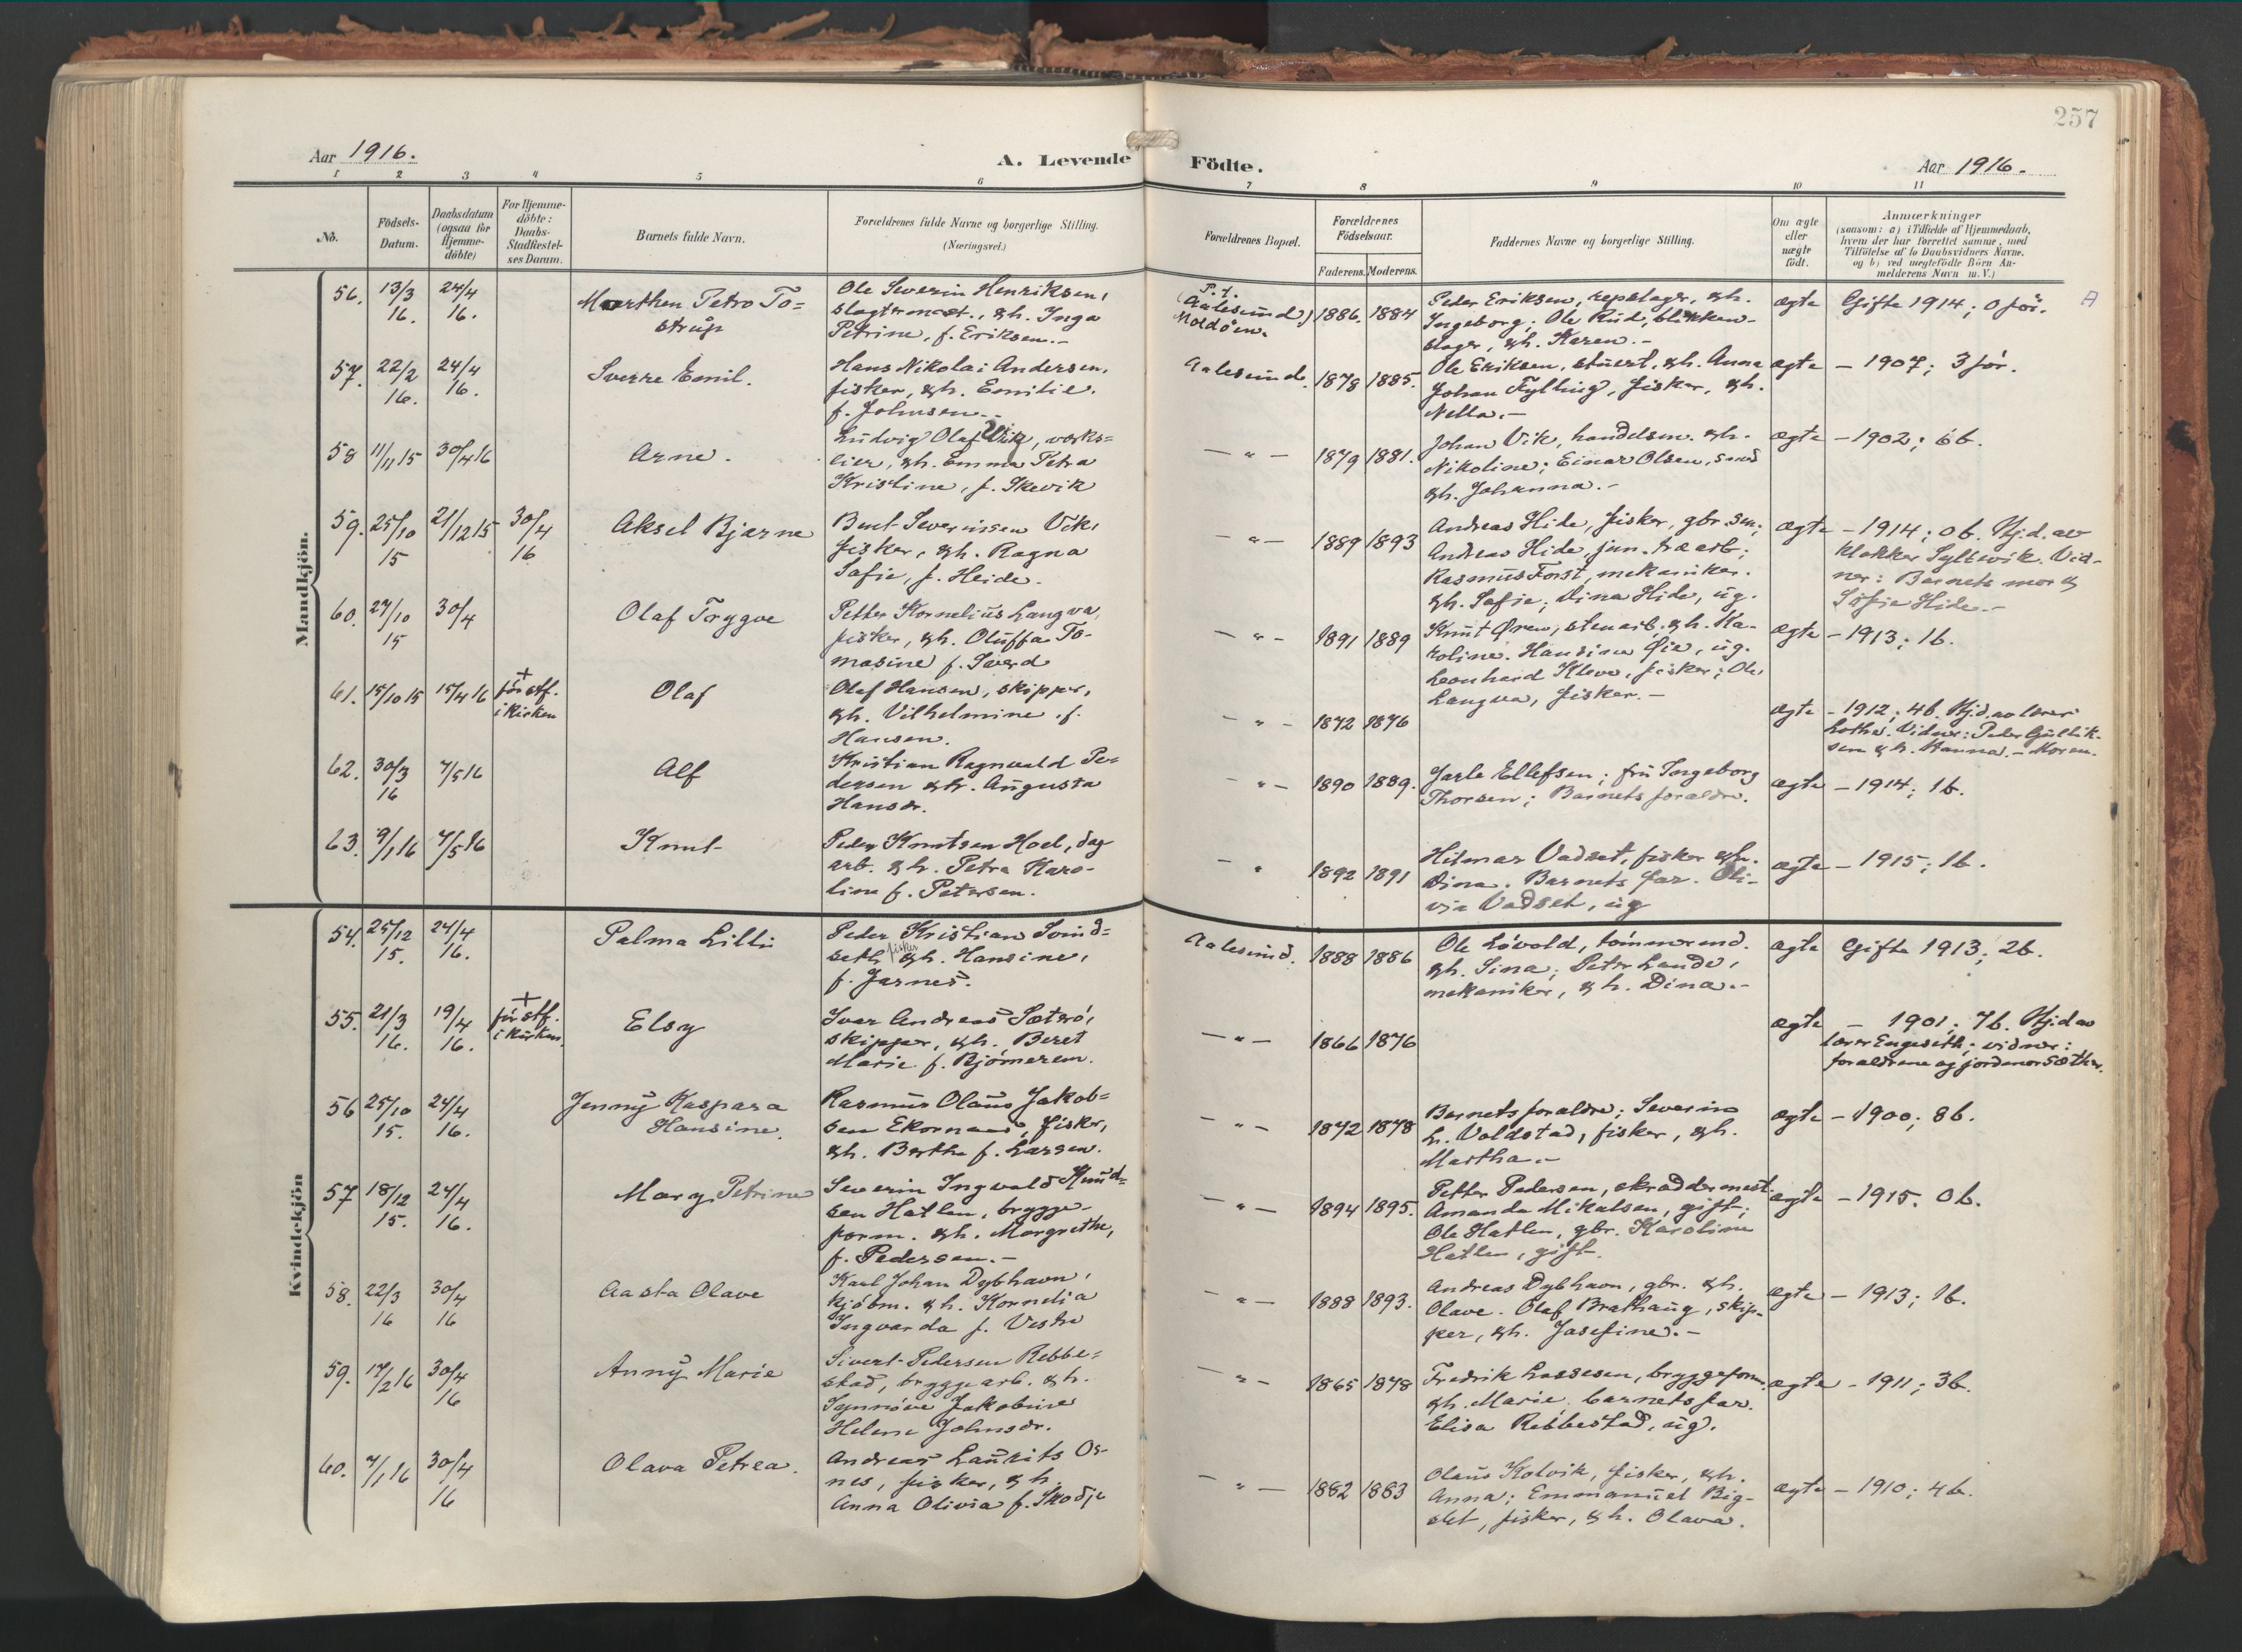 257
Aar 1916.
A. Levende
Födte.
Aar 1916.
1 2 3 4 5 6 7 8 9 10 11
No.
Födsels-
Datum.
Daabsdatum
(ogsaa for
Hjemme-
döbte)
For Hjemme-
döbte:
Daabs-
Stadfæstel-
ses Datum.
Barnets fulde Navn.
Forældrenes fulde Navne og borgerlige Stilling.
(Næringsvei.)
Forældrenes Bopæl.
Forældrenes
Födselsaar.
Faderens. Moderens.
Faddernes Navne og borgerlige Stilling.
Om ægte
eller
uægte
födt.
Anmærkninger
(saasom: a) i Tilfælde af Hjemmedaab,
hvem der har forrettet samme, med
Tilföielse af to Daabsvidners Navne.
og b) ved uægtefödte Börn An-
melderens Navn m. V.)
Mandkjön.
56. 13/3 16. 24/4 16.
Marthen Petro To-
strup
Ole Severin Henriksen,
slagtermest., &h. Inga
Petrine, f. Eriksen.-
P. t.
Aalesund)
Moldöen.
1886. 1884
Peder Eriksen, repslager, &h.
Ingeborg; Ole Rud, blikken-
slager, &h. Karen.-
ægte Gifte 1914; 0 för.
A
57. 22/2 16. 24/4 16.
Sverre Emil.
Hans Nikolai Andersen,
fisker, &h. Emilie.
f. Johnsen.-
Aalesund. 1878 1885.
Ole Eriksen, stuert, &h. Anna
Johan Fylling, fisker, &h.
Nella.-
ægte - 1907; 3 för.
58 11/11 15 30/4 16
Arne.
Ludvig Olaf Vik, værks-
eier, &h. Emma Petra
Kristine, f. Skevik
- " - 1879 1881.
Johan Vik, handelsm. &h.
Nikoline; Einar Olsen, smed
&h. Johanna.-
ægte - 1902; 6 b.
59. 25/10 15 21/12 15 30/4 16
Aksel Bjarne
Bent Severinsen Vik,
fisker, &h. Ragna
Sofie, f. Heide.
- " - 1889 1893
Andreas Hide, fisker, gbr. sen;
Andreas Hide, jun.
Rasmus Forst, mekaniker.
&h. Sofie; Dina Hide, ug.
ægte - 1914; 0 b. Hjd. av
klokker Syltevik. Vid-
ner: Barnets mor &
Sofie Hide.-
60. 27/10 15 30/4
Olaf Trygve
Petter Kornelius Langva,
fisker, &h. Oluffa To-
masine f. Sverd
- " - 1891 1889
Knut Øren, stenarb. &h. Ka-
roline. Hansine Øie, ug.
Leonhard Kleve, fisker; Ole
Langva, fisker.-
ægte - 1913; 1 b.
61. 15/10 15 15/4 16
+
för stf.
i kirken
Olaf
Olaf Hansen, skipper,
&h. Vilhelmine, f.
Hansen.
- " - 1872 1876
ægte - 1912; 4 b. Hjd. av lærer
Lothe. Vidner: Peder Gullik-
sen & h. Hanna.- Moren.
62. 30/3 16 7/5 16
Alf
Kristian Ragnvald Pe-
dersen &h. Augusta
Hansdr.
- " - 1890 1889.
Jarle Ellefsen; fru Ingeborg
Thorsen; Barnets forældre.
ægte - 1914; 1 b.
63. 9/1 16 7/5 16
Knut
Peder Knutsen Hoel, dag
arb. &h. Petra Karo-
line f. Petersen.
- " 1892 1891
Hilmar Vadset, fisker &h.
Dina. Barnets far. Oli-
via Vadset, ug
ægte - 1915; 1 b.
Kvindekjön
54. 25/12 15. 24/4 16.
Palma Lilli
Peder Kristian Svind-
seth fisker &h. Hansine,
f. Jarnes.
Aalesund. 1888 1886
Ole Lövold, tömmermd.
&h. Sina; Peter Lande,
mekaniker, &h. Dina.-
ægte Gifte 1913; 2 b.
55. 21/3 16. 19/4 16.
+
för stf.
i kirken.
Elsy
Ivar Andreas Sæterö,
skipper, &h. Beret
Marie f. Björnerem.
- " 1866 1876
ægte - 1901; 7 b. Hjd av
lærer Engeseth; vidner:
forældrene og jordmor Sæther.
56 25/10 15. 24/4 16.
Jenny Kaspara
Hansine.
Rasmus Olaus Jakob-
sen Ekornæs, fisker,
&h. Berthe f. Larsen.
- " - 1872 1878
Barnets forældre; Severin
L. Voldstad, fisker, &h.
Martha.-
ægte - 1900; 8 b.
57 18/12 15. 24/4 16.
Mary Petrine
Severin Ingvald Knud-
sen Hatlen, brygge-
form. &h. Margrethe,
f. Pedersen.-
- " - 1894 1895.
Petter Pedersen, skræddermest.
Amanda Mikalsen, gift;
Ole Hatlen, gbr. Karoline
Hatlen, gift.
ægte - 1915. 0 b.
58. 22/3 16 30/4 16
Aasta Olave
Karl Johan Dybhavn,
kjöbm. &h. Kornelia
Ingvarda f. Vestre
- " - 1888 1893.
Andreas Dybhavn, gbr. &h.
Olave. Olaf Brathaug, skip-
per, &h. Josefine.-
ægte - 1913; 1 b.
59. 17/2 16 30/4 16
Anny Marie
Sivert Pedersen Rebbe-
stad, bryggearb. &h.
Synnöve Jakobine
Helene Johnsdr.
- " - 1865 1878
Fredrik Lassesen, bryggeform.
&h. Marie. barnets far.
Elisa Rebbestad, ug.
ægte - 1911; 3 b.
60. 7/1 16 30/4 16
Olava Petrea.
Andreas Laurits Os-
nes, fisker, &h.
Anna Olivia f. Skodje
- " - 1882 1883
Olaus Kolvik, fisker, &h.
Anna; Emmanuel Big-
set, fisker, &h. Olava.
ægte - 1910; 4 b.